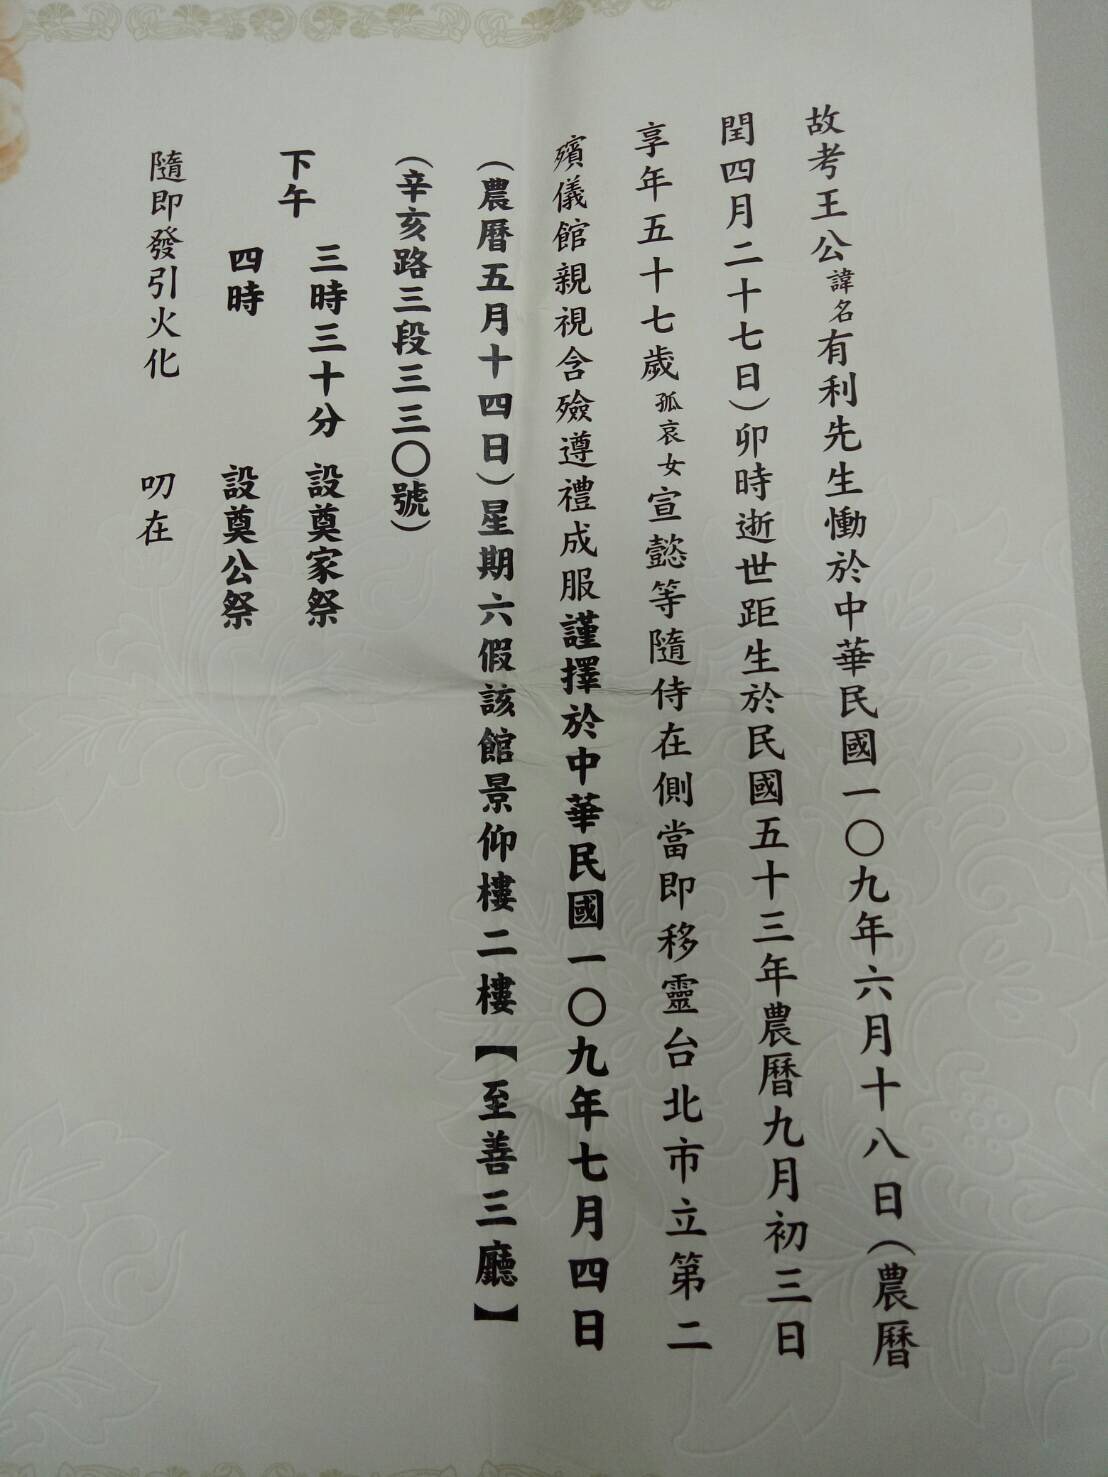 故考王公諱名有利先生慟於中華民國一〇九年六月十八日（農曆
閏四月二十七日）卯時逝世距生於民國五十三年農曆九月初三日
享年五十七歲孤哀女宣懿等隨侍在側當即移靈台北市立第二
殯儀館親視含殮遵禮成服謹擇於中華民國一〇九年七月四日
（農曆五月十四日）星期六假該館景仰樓二樓【至善三廳】
（辛亥路三段三三〇號）
下午
三時三十分 設奠家祭
四時 設奠公祭
隨即發引火化 叨在